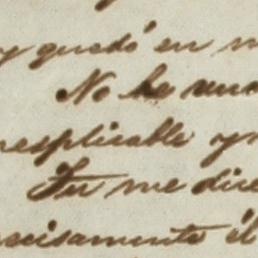 y quedó en m
No he
nesplicable y
Tu me dire
ecisamente él